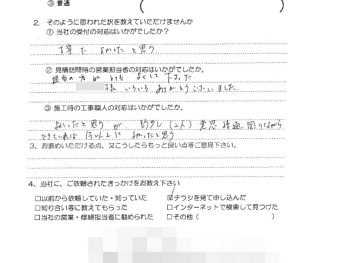 ③ 普通
2. そのように思われた訳を教えていただけませんか
① 当社の受付の対応はいかがでしたか？
よかったと思う
② 見積訪問時の営業担当者の対応はいかがでしたか。
担当の方がとてもよくして下さった
様 いろいろありがとうございました
③ 施工時の工事職人の対応はいかがでしたか。
よかったと思うが (2人) 意思
できていれば よかったと思う
3. お褒めいただける点、又こうしたらもっと良い点等ご意見下さい。
4. 当社に、ご依頼されたきっかけをお教え下さい
□以前から依頼していた・知っていた ☑チラシを見て申し込んだ
□知り合い等に教えてもらった □インターネットで検索して見つけた
□当社の営業・修繕担当者に勧められた □その他（ ）